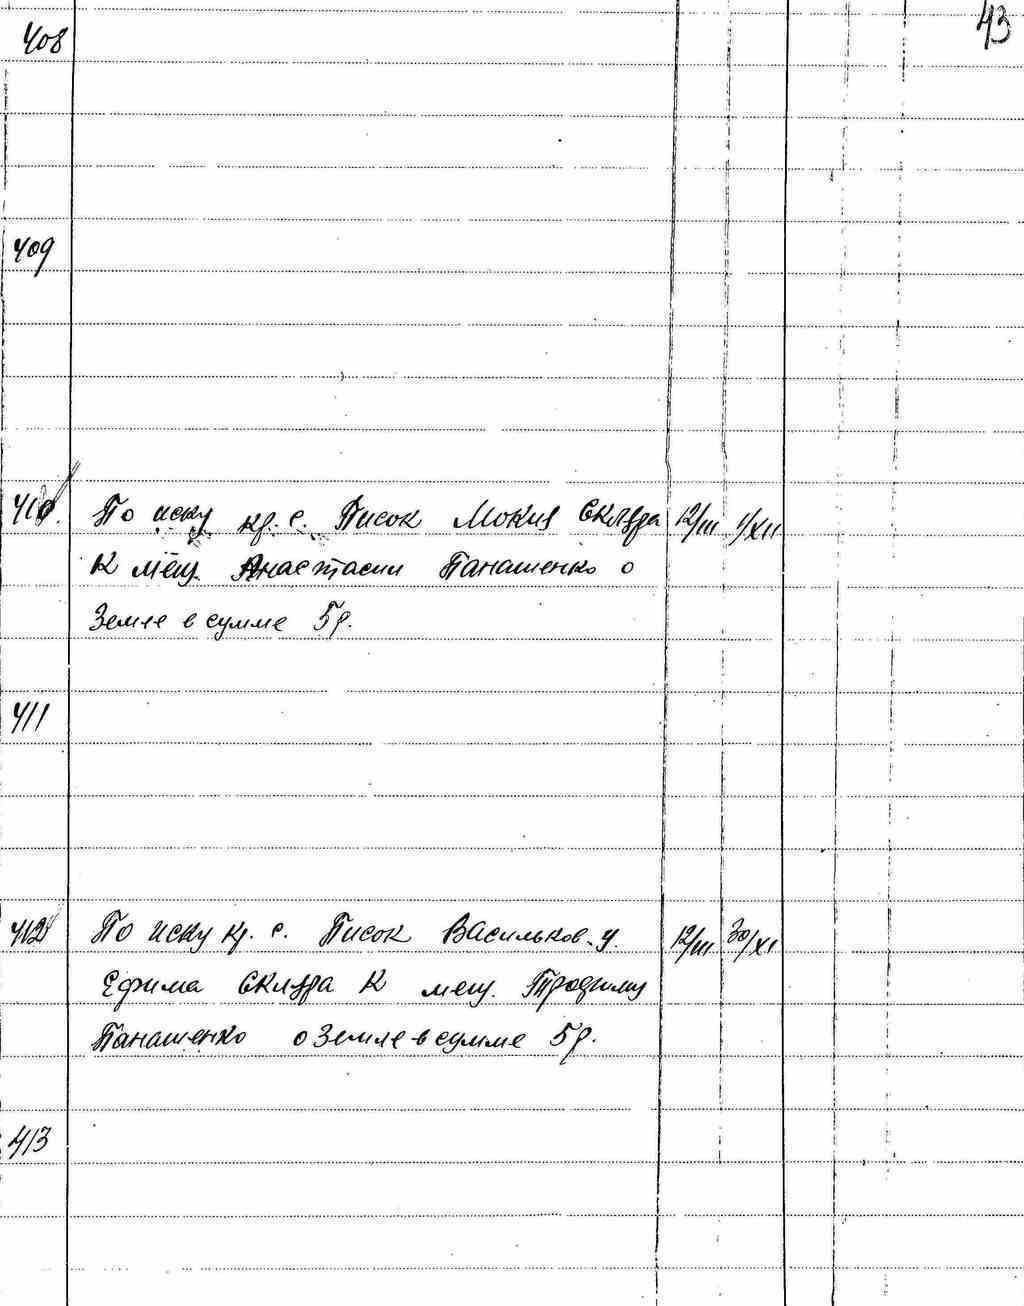 43
408
409
410. По иску кр. с. Писок Мокия Скляра 12/III 1/XII
к мещ. Анастасии Панашенко о
Земле в сумме 5 р.
411
412 По иску кр. с. Писок Васильков. у.
Ефима Скляра к мещ. Трофиму
Панашенко о Земле в сумме 5 р.
12/III 30/XI
413